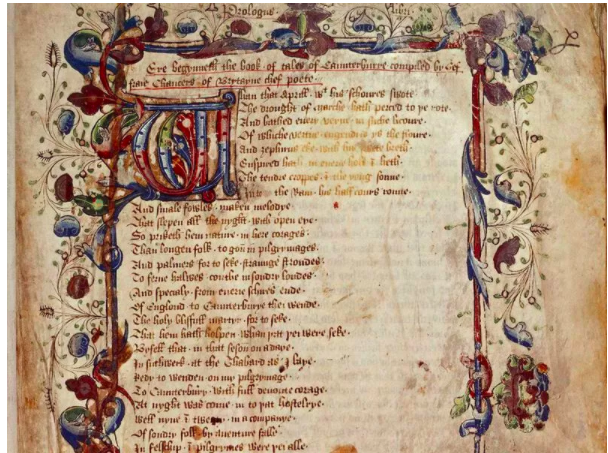 Prologus libri
Eye begynneth the book of tales of Caunterburye compiled by Gef
fraie Chaucers of Brytayne chef poete
Whan that Aprille wt his schowres swote
The drought of marche hath perced to þe rote
And bathed euery veyne in suche licoure
Of whiche vertue engendrid ys the floure
And zephirus eke with his swete breth
Enspired hath in euery holt & heth
The tendre croppes & the yong sonne
Into the Ram his half cours ronne
And smale fowles maken melodye
That slepen all the nyght with open eye
So priketh hem nature in here corages
Than longen folk to gon in pilgrymages
And palmers for to seke straunge strondes
To ferne halwes couthe in sondry londes
And specialy from euerie schires ende
Of England to Caunterburye thei wende
The holy blisfull martyr for to seke
That hem hath holpen whan þat þei were seke
Byfell that in that seson on a daye
In suthwerk at the Thabard as I laye
Redy to wenden on my pilgrymage
To Caunterbury with full deuoute corage
At nyght was come in to þat hostelrye
Well nyne & twenty in a companye
Of sondry folk by auenture falle
In felschip & pilgrymes were þei alle